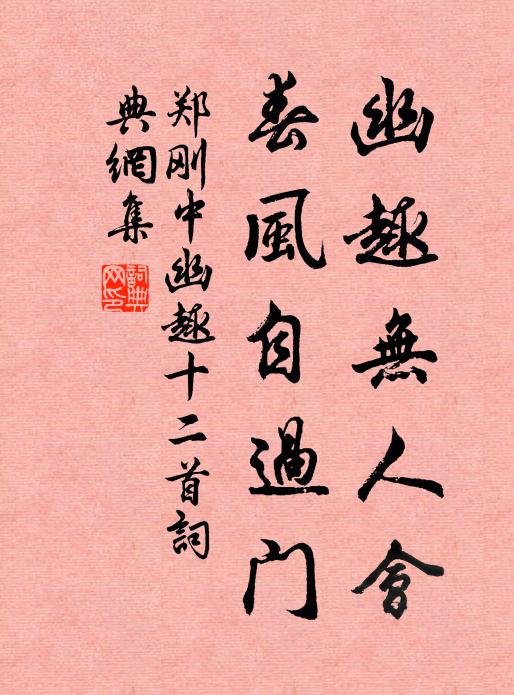 幽趣無人會
春風自過门
郑刚中幽趣十二首詞
典網集
詞典网印